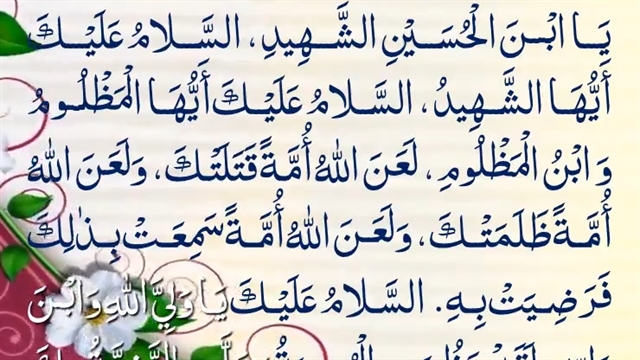 يَا ابْنَ الْحُسَيْنِ الشَّهِيدِ، السَّلَامُ عَلَيْكَ
أَيُّهَا الشَّهِيدُ، السَّلَامُ عَلَيْكَ أَيُّهَا الْمَظْلُومُ
وَابْنُ الْمَظْلُومِ، لَعَنَ اللهُ أُمَّةً قَتَلَتْكَ، وَلَعَنَ اللهُ
أُمَّةً ظَلَمَتْكَ، وَلَعَنَ اللهُ أُمَّةً سَمِعَتْ بِذٰلِكَ
فَرَضِيَتْ بِهِ. السَّلَامُ عَلَيْكَ يَا وَلِيَّ اللهِ وَابْنَ